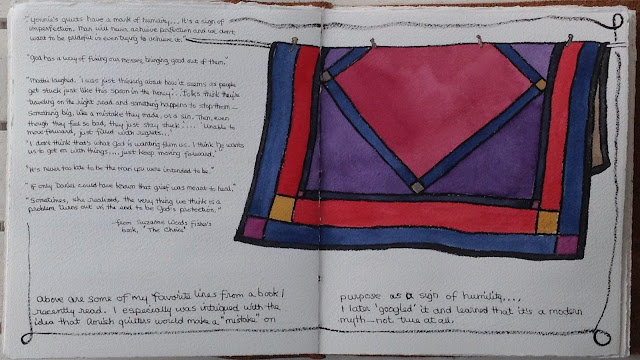 "Yonnie's quilts have a mark of humility... It's a sign of
imperfection. Man will never achieve perfection and we don't
want to be prideful in even trying to achieve it."
"God has a way of fixing our messes, bringing good out of them."
"Mattie laughed. 'I was just thinking about how it seems as people
get stuck just like this spoon in the honey'... Folks think they're
traveling on the right road and something happens to stop them—
something big, like a mistake they made, or a sin. Then, even
though they feel so bad, they just stay stuck.... Unable to
move forward, just filled with regrets..."
"I don't think that's what God is wanting from us. I think He wants
us to get on with things.... just keep moving forward."
"It's never too late to be the man you were intended to be."
"If only Daniel could have known that grief was meant to heal."
"Sometimes, she realized, the very thing we think is a
problem turns out in the end to be God's protection."
—from Suzanne Woods Fisher's
book, "The Choice"
above are some of my favorite lines from a book I
recently read. I especially was intrigued with the
idea that Amish quilters would make a "mistake" on
purpose as a sign of humility....
I later 'googled' it and learned that it's a modern
myth—not true at all.